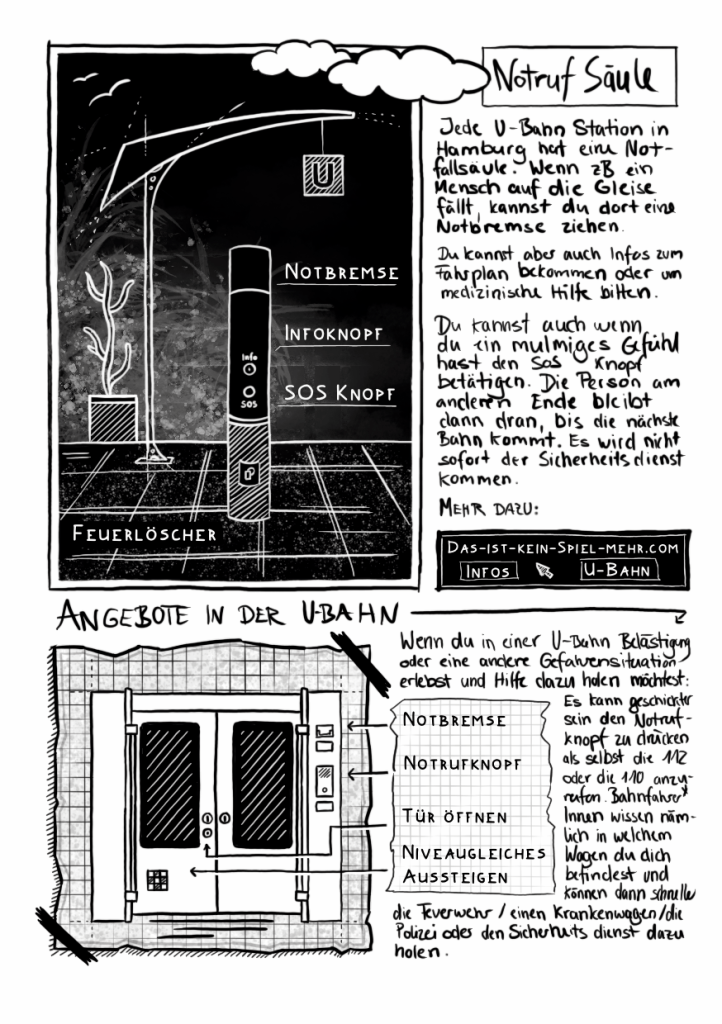 Notruf Säule
Jede U-Bahn Station in
Hamburg hat eine Not-
fallsäule. Wenn zB ein
Mensch auf die Gleise
fällt, kannst du dort eine
Notbremse ziehen.
Du kannst aber auch Infos zum
Fahrplan bekommen oder um
medizinische Hilfe bitten.
Du kannst auch wenn
du ein mulmiges Gefühl
hast den SOS Knopf
betätigen. Die Person am
anderen Ende bleibt
dann dran, bis die nächste
Bahn kommt. Es wird nicht
sofort der Sicherheitsdienst
kommen.
MEHR DAZU:
DAS-IST-KEIN-SPIEL-MEHR.COM
INFOS
U-BAHN
U
NOTBREMSE
INFOKNOPF
SOS KNOPF
Info
SOS
FEUERLÖSCHER
ANGEBOTE IN DER U-BAHN
Wenn du in einer U-Bahn Belästigung
oder eine andere Gefahrensituation
erlebst und Hilfe dazu holen möchtest:
Es kann geschickter
sein den Notruf-
knopf zu drücken
als selbst die 112
oder die 110 anzu-
rufen. Bahnfahrer*
Innen wissen näm-
lich in welchem
Wagen du dich
befindest und
können dann schneller
die Feuerwehr / einen Krankenwagen/die
Polizei oder den Sicherheits dienst dazu
holen.
NOTBREMSE
NOTRUFKNOPF
TÜR ÖFFNEN
NIVEAUGLEICHES
AUSSTEIGEN